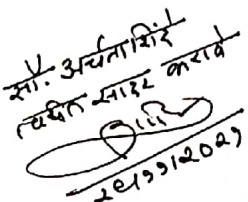 सौ. अर्चना शिंदे
त्वरीत सादर करावे
२९/११/२०२१